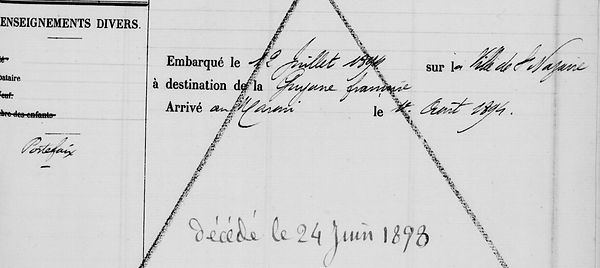 ENSEIGNEMENTS DIVERS.
Embarqué le 12 Juillet 1894 sur la Ville de St Nazaire
à destination de la Guyane française
Arrivé au Maroni le 1er Août 1894.
bataire
euf.
bre des enfants
Portefaix
décédé le 24 Juin 1898